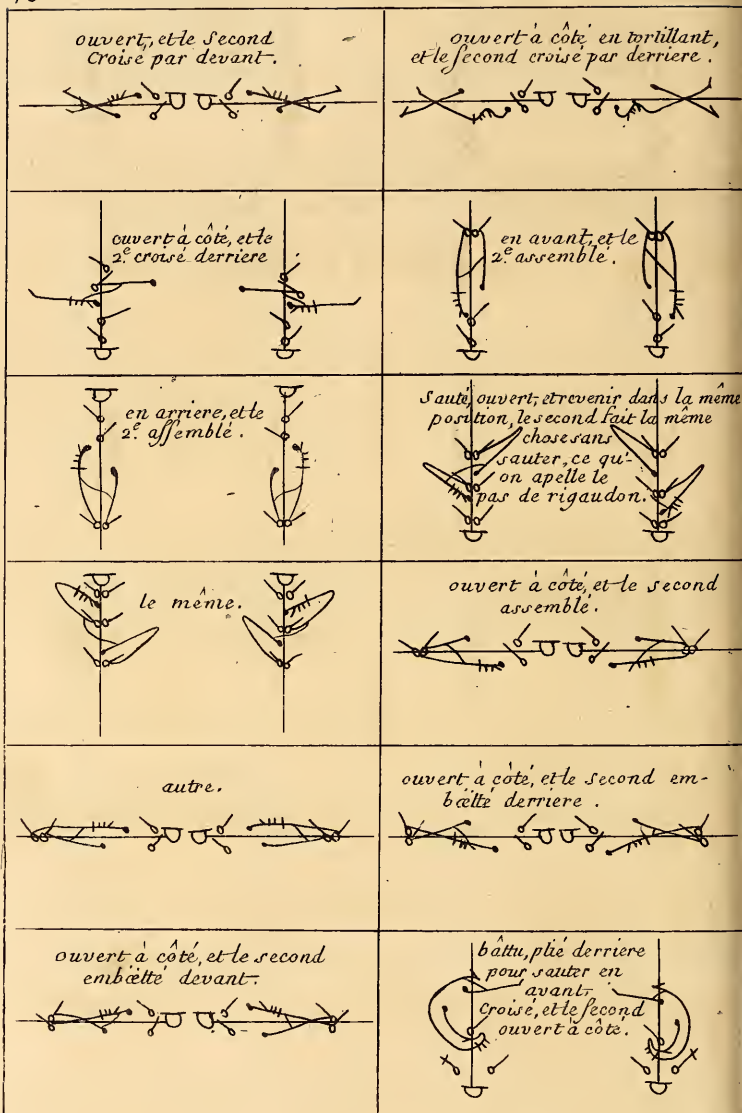 ouvert, et le Second
Croisé par devant.
ouvert à côté en tortillant,
et le second croisé par derriere.
ouvert à côté, et le
2.e croisé derriere
en avant, et le
2.e assemblé.
en arriere, et le
2.e assemblé.
Sauté, ouvert, et revenir dans la même
position, le second fait la même
chose sans
sauter, ce qu'-
on apelle le
pas de rigaudon.
le même.
ouvert à côté, et le second
assemblé.
autre.
ouvert à côté, et le second em-
bœtté derriere.
ouvert à côté, et le second
embœtté devant.
bâttu, plié derriere
pour sauter en
avant
Croisé, et le second
ouvert à côté.